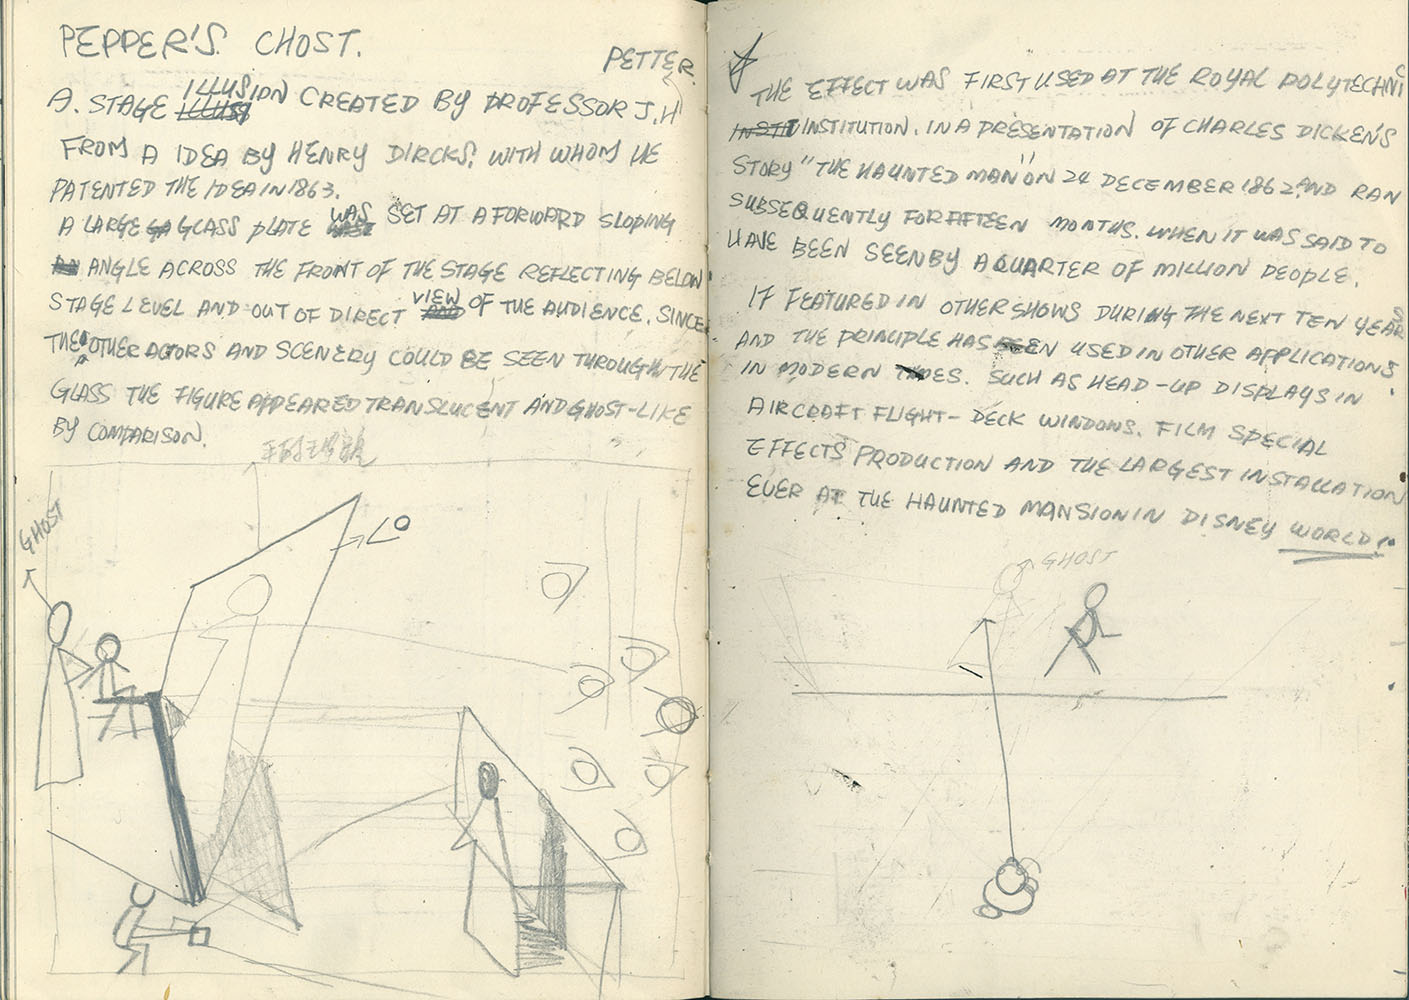 PEPPER'S. GHOST.
PETTER.
A. STAGE ILLUSION CREATED BY PROFESSOR J.H
FROM A IDEA BY HENRY DIRCKS, WITH WHOM HE
PATENTED THE IDEA IN 1863.
A LARGE GLASS PLATE WAS SET AT A FORWARD SLOPING
ANGLE ACROSS THE FRONT OF THE STAGE REFLECTING BELOW
STAGE LEVEL AND OUT OF DIRECT VIEW OF THE AUDIENCE. SINCE
THE OTHER ACTORS AND SCENERY COULD BE SEEN THROUGH THE
GLASS THE FIGURE APPEARED TRANSLUCENT AND GHOST-LIKE
BY COMPARISON.
GHOST
THE EFFECT WAS FIRST USED AT THE ROYAL POLYTECHNIC
INSTITUTION. IN A PRESENTATION OF CHARLES DICKEN'S
STORY "THE HAUNTED MAN" ON 24 DECEMBER 1862. AND RAN
SUBSEQUENTLY FOR FIFTEEN MONTHS. WHEN IT WAS SAID TO
HAVE BEEN SEEN BY A QUARTER OF MILLION PEOPLE.
IT FEATURED IN OTHER SHOWS DURING THE NEXT TEN YEARS
AND THE PRINCIPLE HAS BEEN USED IN OTHER APPLICATIONS
IN MODERN TIMES. SUCH AS HEAD-UP DISPLAYS IN
AIRCRAFT FLIGHT-DECK WINDOWS. FILM SPECIAL
EFFECTS PRODUCTION AND THE LARGEST INSTALLATION
EVER AT THE HAUNTED MANSION IN DISNEY WORLD!
GHOST